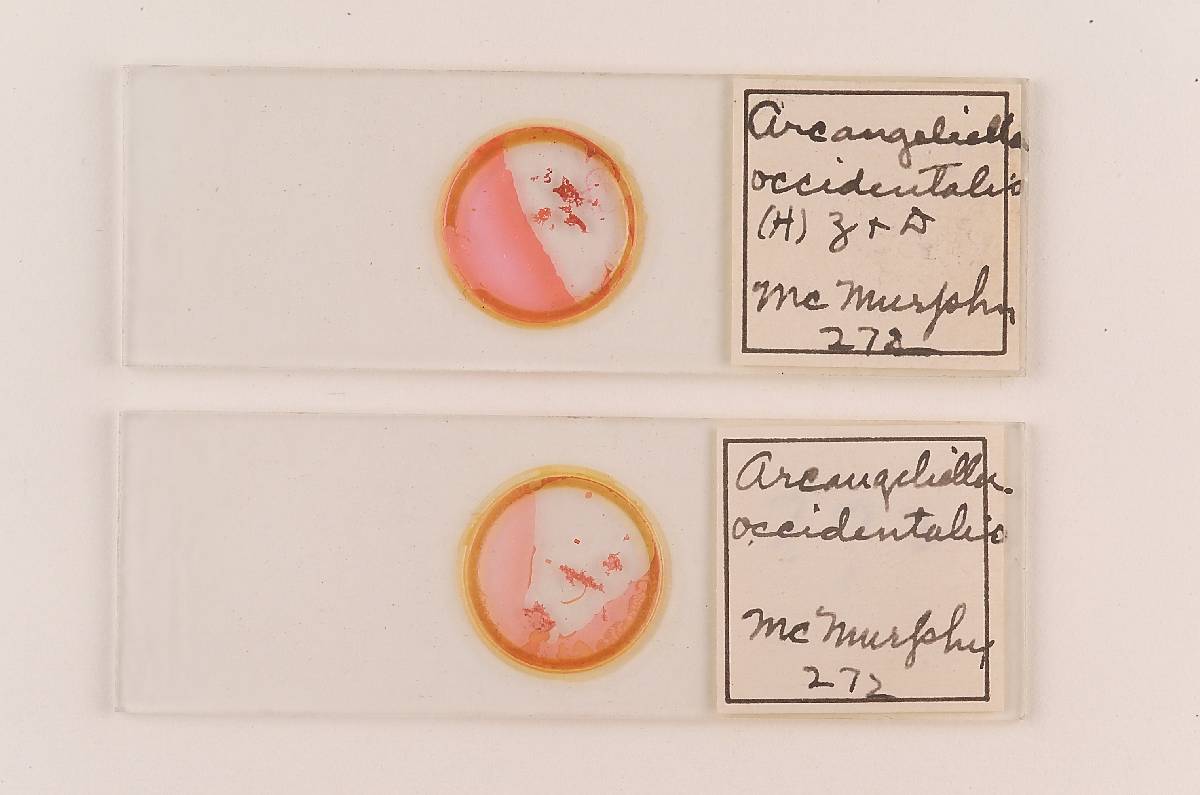 Arcangeliella
occidentalis
(H) Z + D
McMurphy
272
Arcangeliella.
occidentalis
McMurphy
272